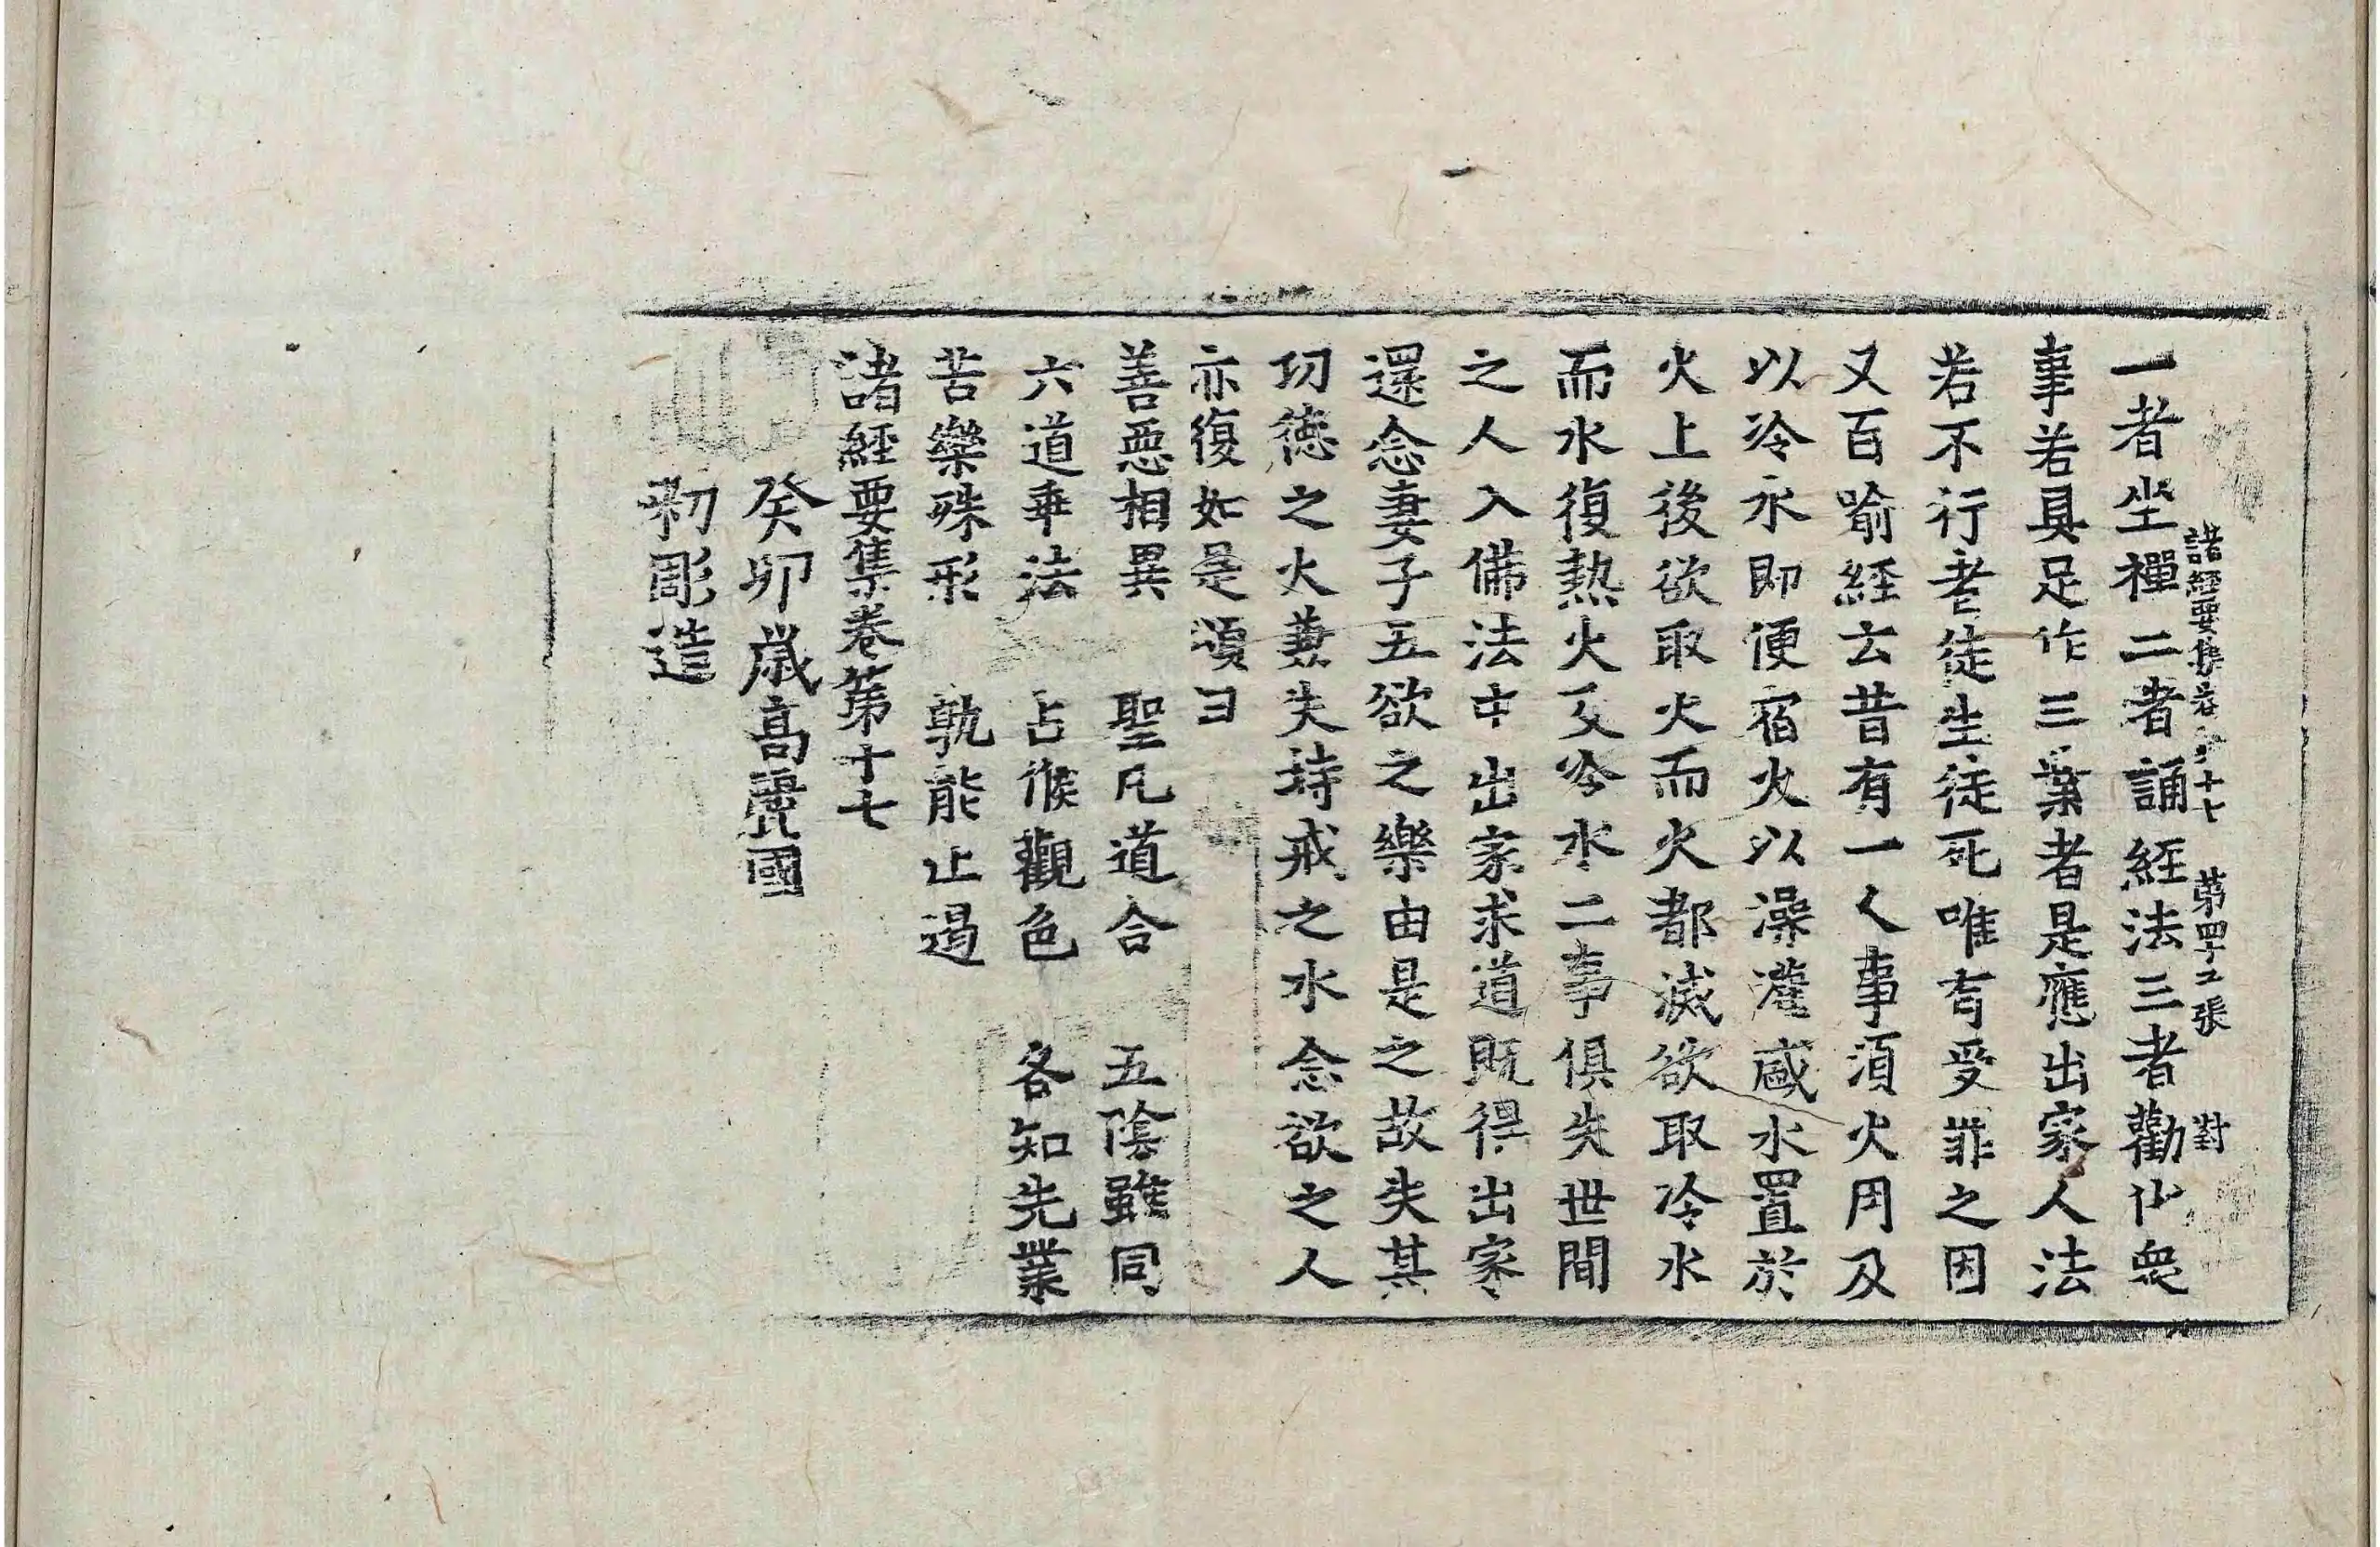 諸經要集卷第十七 第四十五張 對
一者坐禪二者誦經法三者勸化衆
事若具足作三業者是應出家人法
若不行者徒生徒死唯有受罪之因
又百喻經云昔有一人事須火用及
以冷水即便宿火以澡灌盛水置於
火上後欲取火而火都滅欲取冷水
而水復熱火及冷水二事俱失世間
之人入佛法中出家求道既得出家
還念妻子五欲之樂由是之故失其
功德之火兼失持戒之水念欲之人
亦復如是頌曰
善惡相異 聖凡道合 五陰雖同
六道乖法 占候觀色 各知先業
苦樂殊形 孰能止遏
諸經要集卷第十七
癸卯歲高麗國
彫造